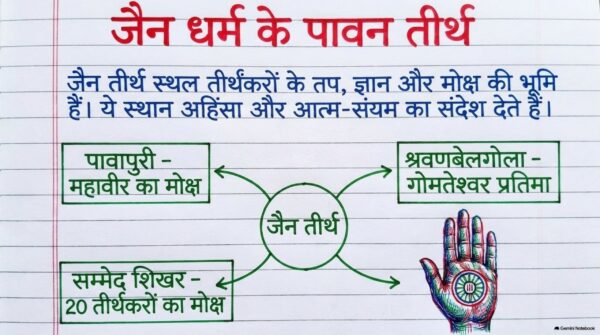 जैन धर्म के पावन तीर्थ
जैन तीर्थ स्थल तीर्थंकरों के तप, ज्ञान और मोक्ष की भूमि
हैं। ये स्थान अहिंसा और आत्म-संयम का संदेश देते हैं।
पावापुरी –
महावीर का मोक्ष
श्रवणबेलगोला –
गोमतेश्वर प्रतिमा
जैन तीर्थ
सम्मेद शिखर –
20 तीर्थकरों का मोक्ष
Gemini Notebook